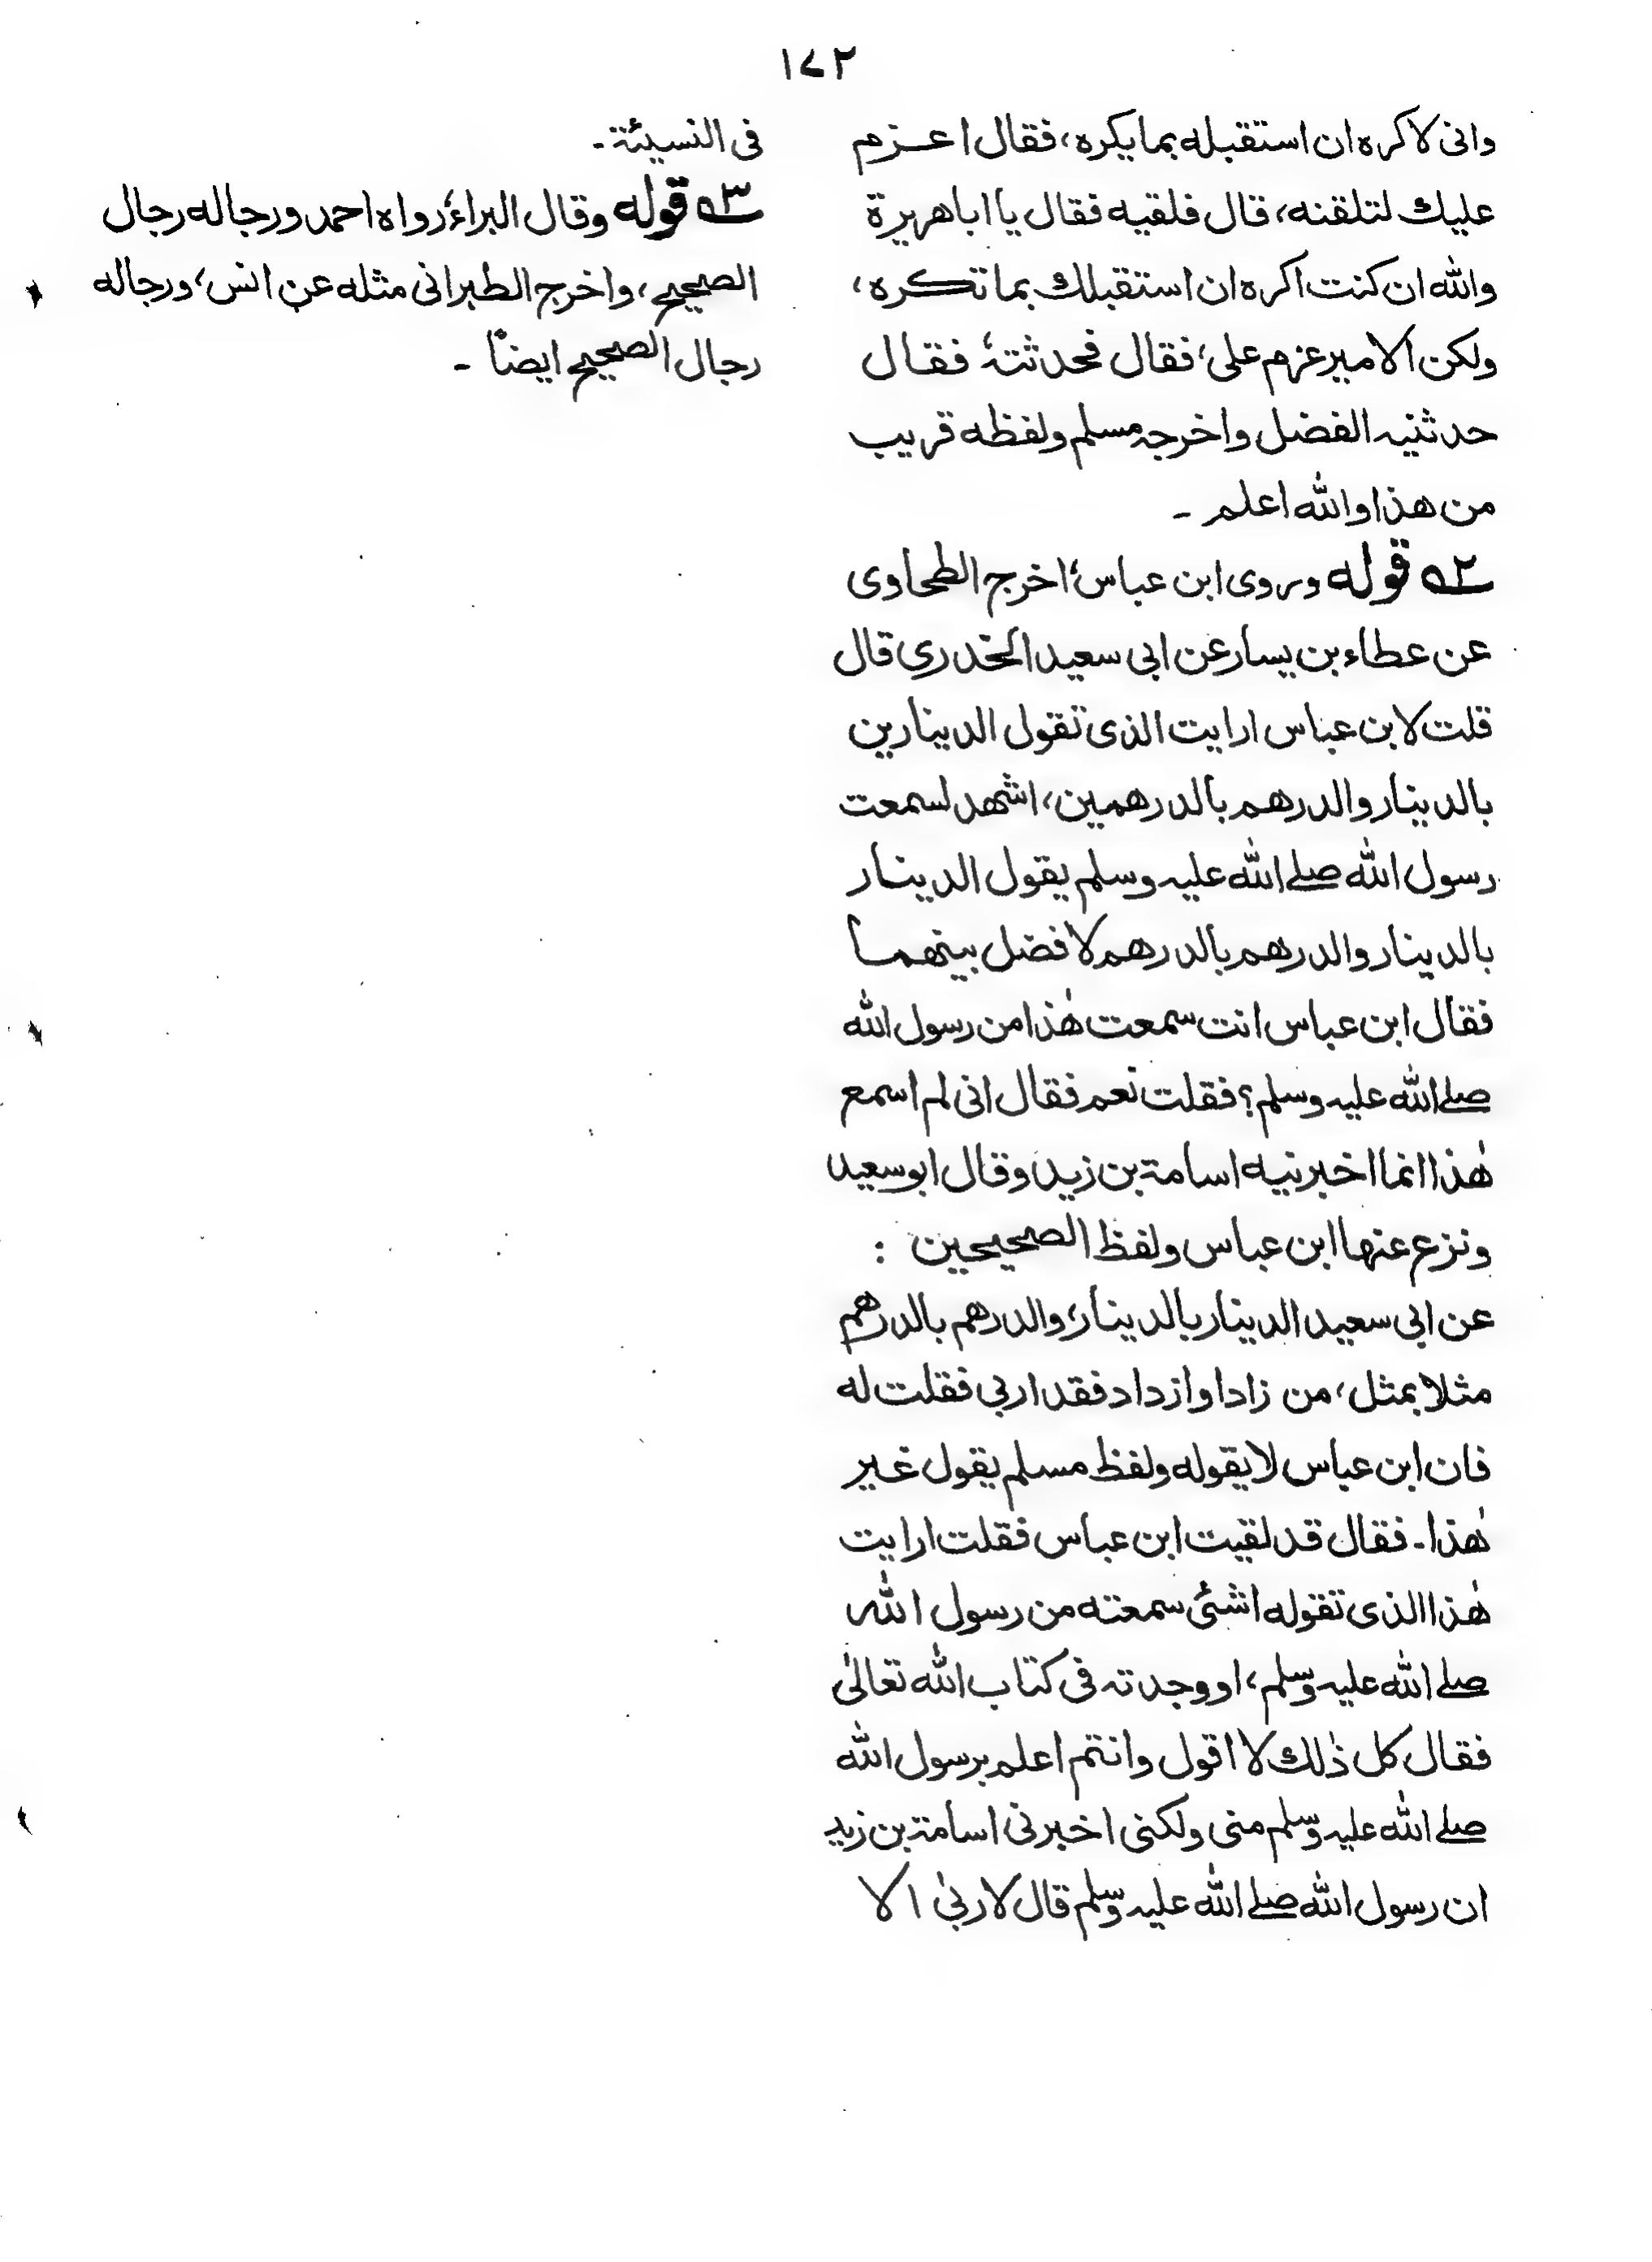 ١٧٢
وانى لاكره ان استقبله بما يكره، فقال اعزم
عليك لتلقنه، قال فلقيه فقال يا ابا هريرة
والله ان كنت اكره ان استقبلك بما تكره،
ولكن الامير عزم على، فقال فحدثتهٗ فقال
حدثنيه الفضل واخرجه مسلم ولفظه قريب
من هذا والله اعلم -
٢ـه قوله وروى ابن عباسؓ اخرج الطحاوى
عن عطاء بن يسار عن ابى سعيد الخدرى قال
قلت لابن عباس ارايت الذى تقول الدينارين
بالدينار والدرهم بالدرهمين، اشهد لسمعت
رسول الله صلے الله عليه وسلم يقول الدينار
بالدينار والدرهم بالدرهم لا فضل بينهما
فقال ابن عباس انت سمعت هٰذا من رسول الله
صلے الله عليه وسلم؟ فقلت نعم فقال انى لم اسمع
هٰذا انما اخبرنيه اسامة بن زيد وقال ابوسعيد
ونزع عنها ابن عباس ولفظ الصحيحين :
عن ابى سعيد الدينار بالدينار، والدرهم بالدرهم
مثلا بمثل، من زاد او ازداد فقد اربى فقلت له
فان ابن عباس لا يقوله ولفظ مسلم يقول غير
هٰذا - فقال قد لقيت ابن عباس فقلت ارايت
هٰذا الذى تقوله اشئى سمعته من رسول الله
صلے الله عليه وسلم، او وجدته فى كتاب الله تعالىٰ
فقال كل ذٰلك لا اقول وانتم اعلم برسول الله
صلے الله عليه وسلم منى ولكنى اخبرنى اسامة بن زيد
ان رسول الله صلے الله عليه وسلم قال لا ربىٰ الا
فى النسيئة -
٣ـه قوله وقال البراءؓ رواه احمد ورجاله رجال
الصحيح، واخرج الطبرانى مثله عن انس، ورجاله
رجال الصحيح ايضاً -